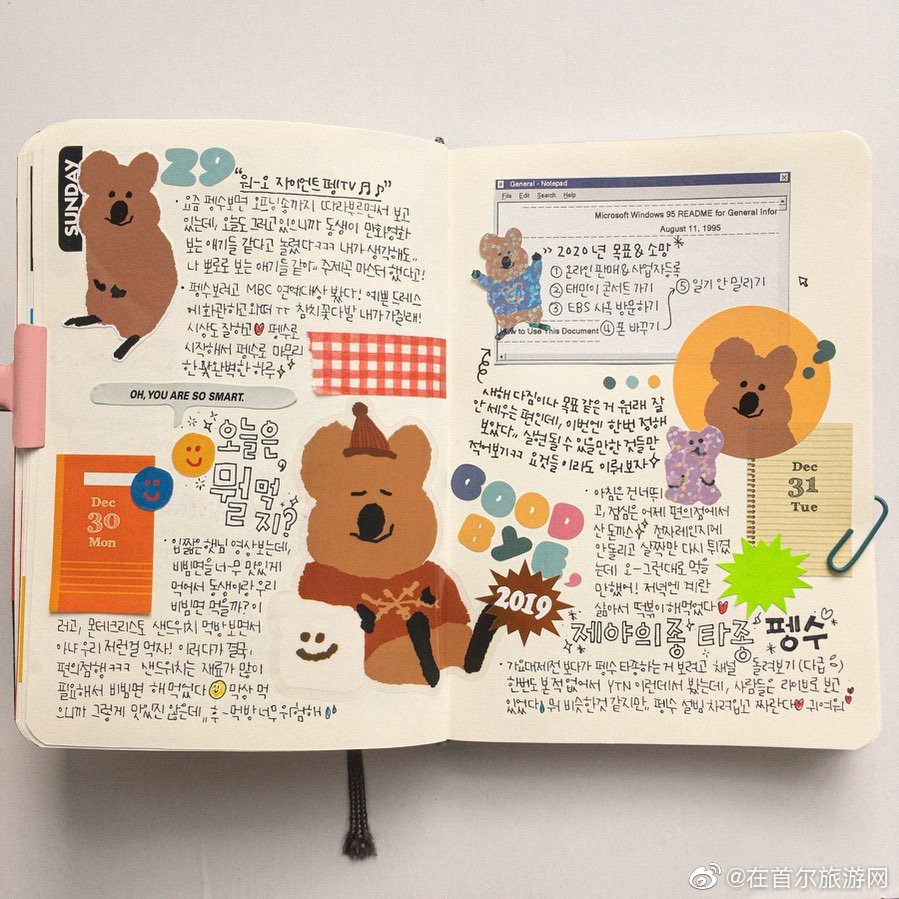 SUNDAY
29
"원-오 자이언트 펭TV♬♪"
· 요즘 펭수보면 오프닝송까지 따라부르면서 보고
있는데, 오늘도 그러고 있으니까 동생이 만화영화
보는 애기들 같다고 놀렸다ㅋㅋㅋ 내가 생각해도..
나 뽀로로 보는 애기들 같아.. 주제곡 마스터 했다고!
· 펭수보려고 MBC 연예대상 봤다! 예쁜 드레스
에 화관하고 와떠 ㅠㅠ 참치꽃다발 내가 가즐래!
시상도 잘하고 펭수로
시작해서 펭수로 마무리
한 완벽한 하루
OH, YOU ARE SO SMART.
오늘은,
뭘 먹
지?
Dec
30
Mon
· 입짧은햇님 영상보는데,
비빔면을 너-무 맛있게
먹어서 동생이랑 우리
비빔면 먹을까? 이
러고, 몬테크리스토 샌드위치 먹방 보면서
아냐 우리 저런걸 먹자! 이러다가 결국,
편의점행ㅋㅋㅋ 샌드위치는 재료가 많이
필요해서 비빔면 해먹었다 막상 먹
으니까 그렇게 맛있진 않은데.. 휴- 먹방 너무 위험해
General - Notepad
File Edit Search Help
Microsoft Windows 95 README for General Infor
August 11, 1995
》 2020년 목표 & 소망*
① 온라인 판매 & 사업자등록
② 태민이 콘서트 가기
③ EBS 사옥 방문하기
④ 폰 바꾸기
⑤ 일기 안 밀리기
How to Use This Document
새해 다짐이나 목표 같은거 원래 잘
안 세우는 편인데, 이번엔 한번 정해
보았다.. 실현될 수 있을만한 것들만
적어보기ㅋㅋ 요것들이라도 이뤄보자
GOOD
BYE,
2019
Dec
31
Tue
· 아침은 건너뛰
고, 점심은 어제 편의점에서
산 돈까스 전자레인지에
안돌리고 살짝만 다시 튀겼
는데 오-그런대로 먹을
만했어! 저녁엔 계란
삶아서 떡볶이 해먹었다
제야의종 타종 펭수
· 가요대제전 보다가 펭수 타종하는거 보려고 채널 돌려보기 (다급)
한번도 본적 없어서 YTN 이런데서 봤는데, 사람들은 라이브로 보고
있었다 뭐 비슷한것 같지만.. 펭수 설빔 차려입고 짜란다 귀여워
@在首尔旅游网